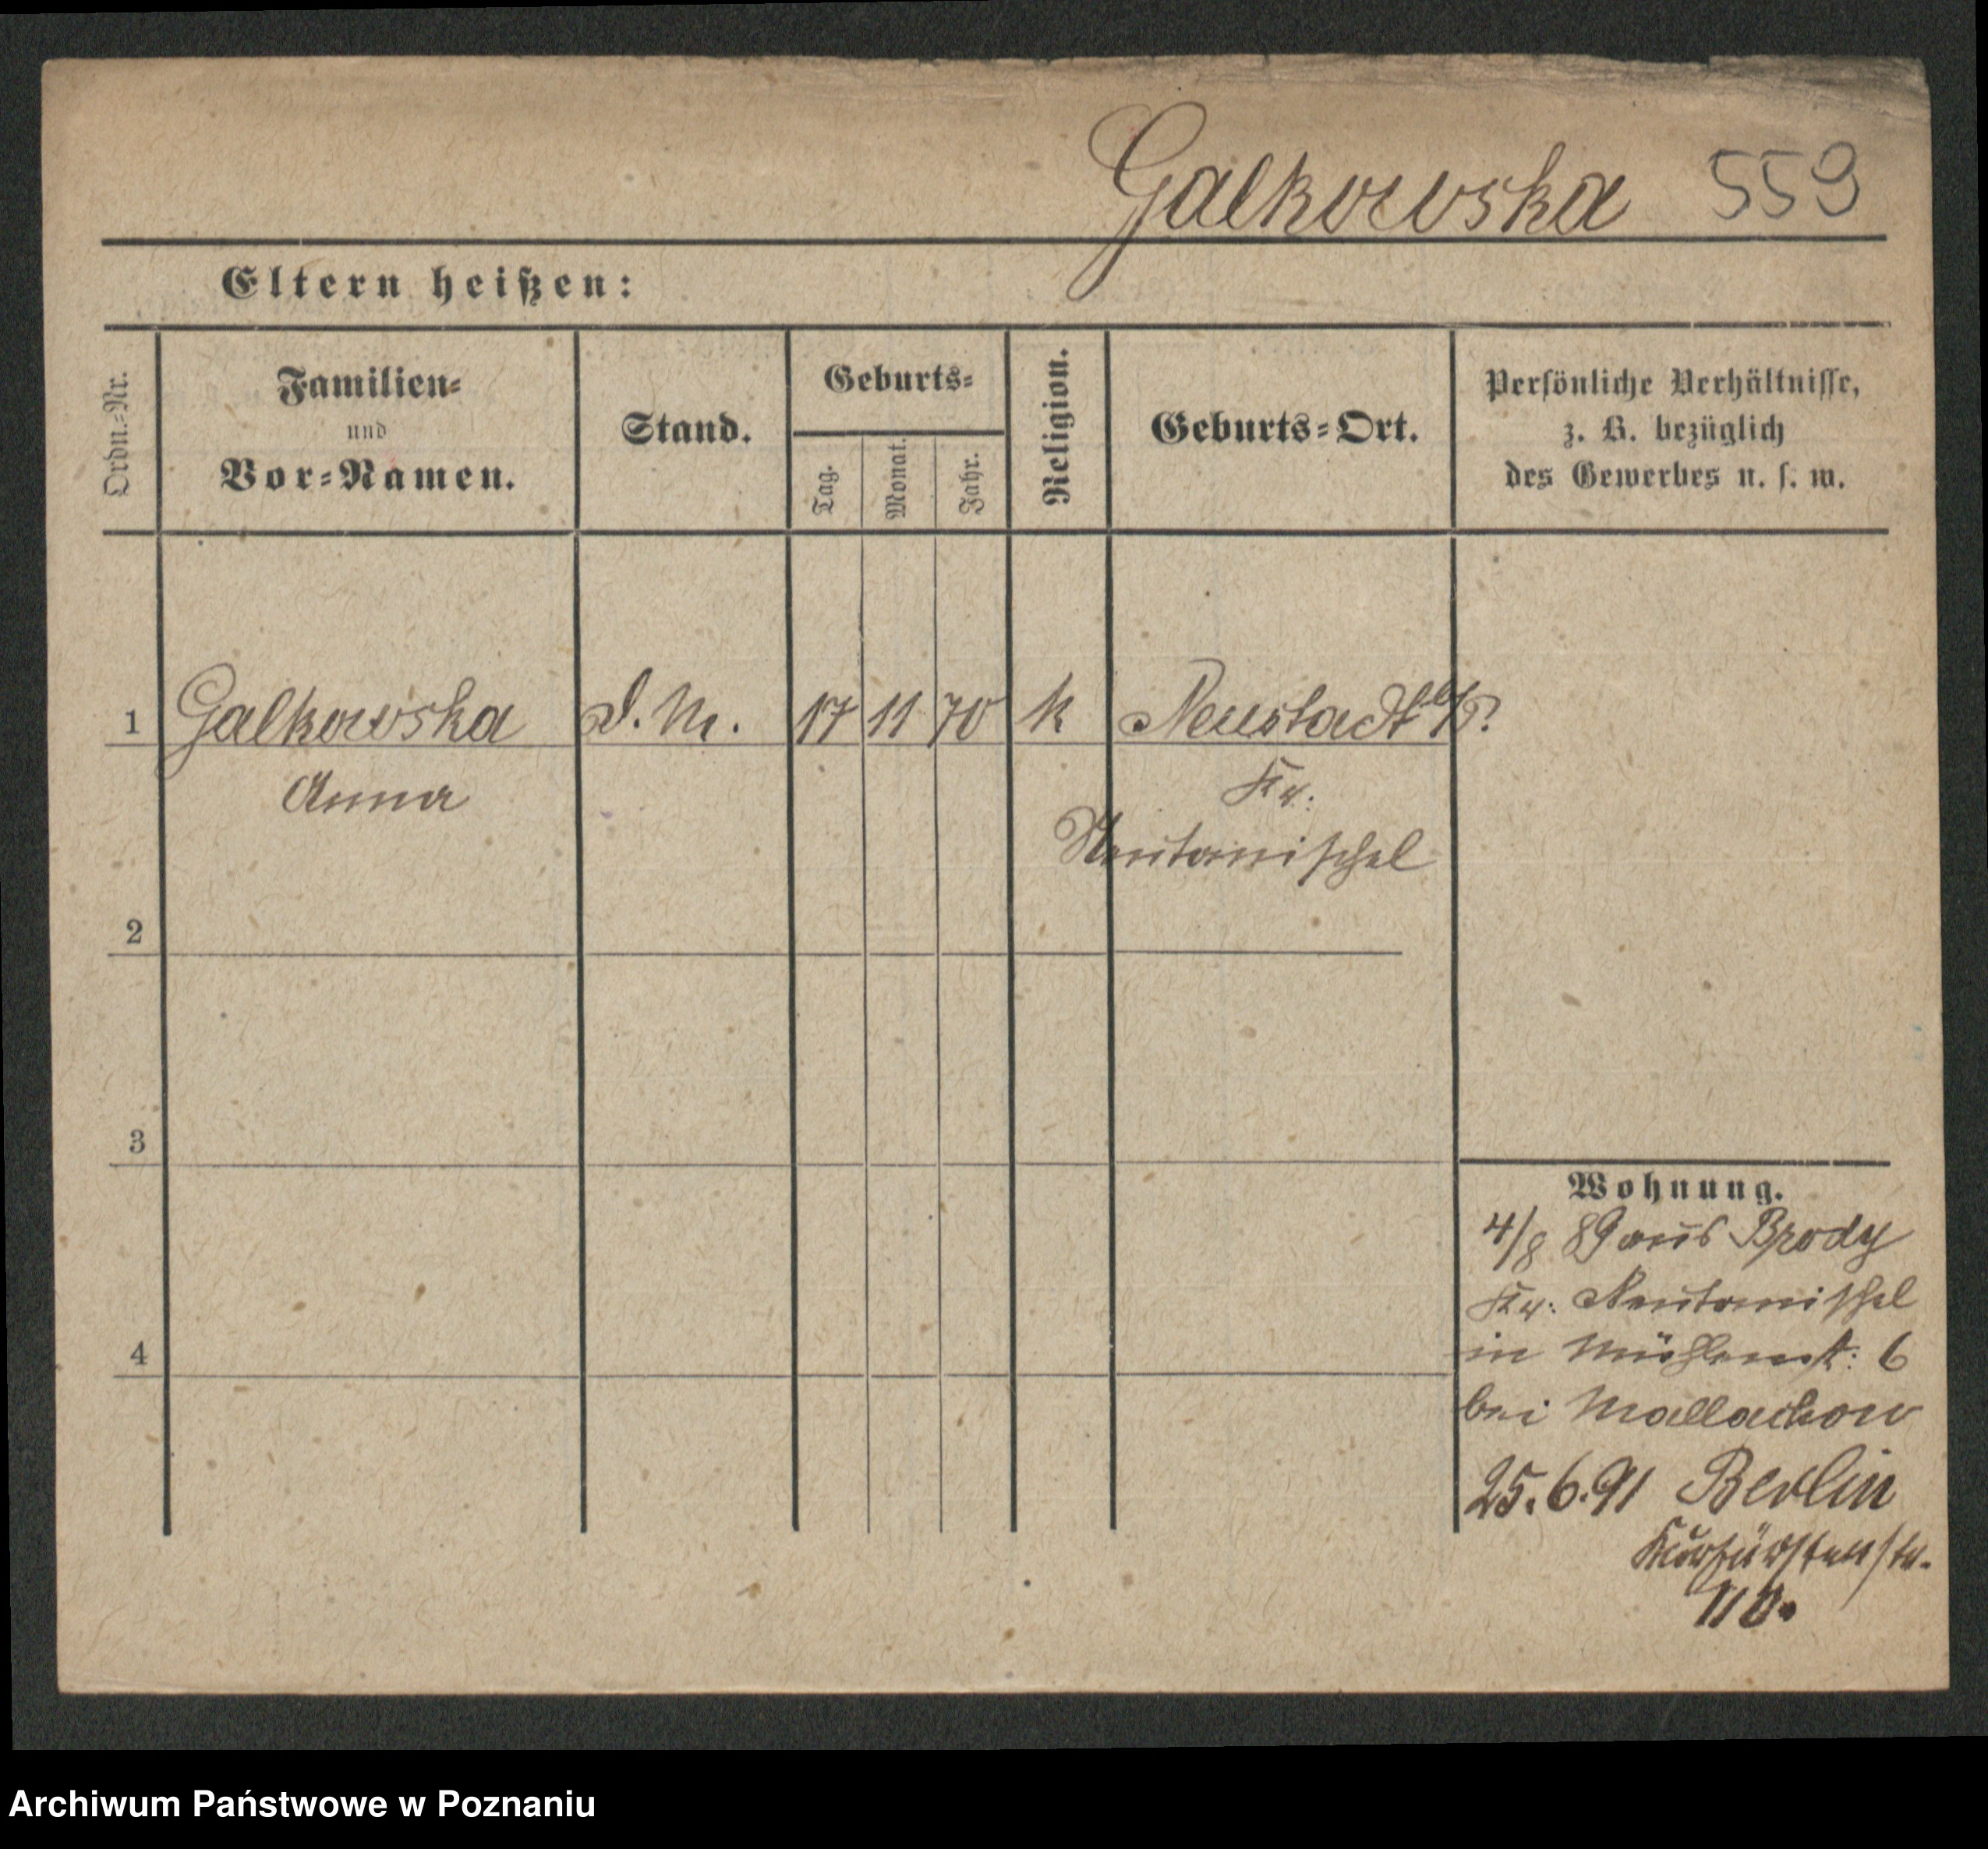 Galkowska 559
Eltern heißen:
Ordn.-Nr.
Familien-
und
Vor-Namen.
Stand.
Geburts-
Tag.
Monat.
Jahr.
Religion.
Geburts-Ort.
Persönliche Verhältnisse,
z. B. bezüglich
des Gewerbes u. s. w.
1 Galkowska D. M. 17 11 70 k Neustadt b/P.
Anna
Kr.
Neutomischel
2
3
4
Wohnung.
4/8 89 aus Brody
Kr. Neutomischel
in Mühlenst: 6
bei Mallachow
25.6.91 Berlin
Kurfürstenstr.
Archiwum Państwowe w Poznaniu